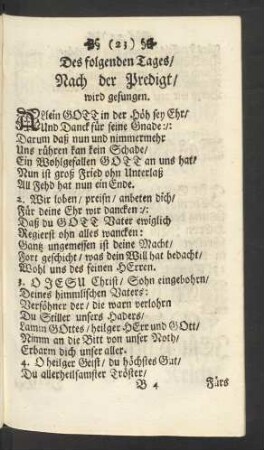 (23)
Des folgenden Tages/
Nach der Predigt/
wird gesungen.
Allein GOTT in der Höh sey Ehr/
Und Danck für seine Gnade:/:
Darum daß nun und nimmermehr
Uns rühren kan kein Schade/
Ein Wohlgefallen GOTT an uns hat/
Nun ist groß Fried ohn Unterlaß
All Fehd hat nun ein Ende.
2. Wir loben/ preisn/ anbeten dich/
Für deine Ehr wir dancken:/:
Daß du GOTT Vater ewiglich
Regierst ohn alles wancken:
Gantz ungemessen ist deine Macht/
Fort geschicht/ was dein Will hat bedacht/
Wohl uns des feinen HErren.
3. O JESU Christ/ Sohn eingebohrn/
Deines himmlischen Vaters:
Versöhner der/ die warn verlohrn
Du Stiller unsers Haders/
Lamm GOttes/ heilger HErr und GOtt/
Nimm an die Bitt von unser Noth/
Erbarm dich unser aller.
4. O heilger Geist/ du höchstes Gut/
Du allerheilsamster Tröster/
B 4 Fürs